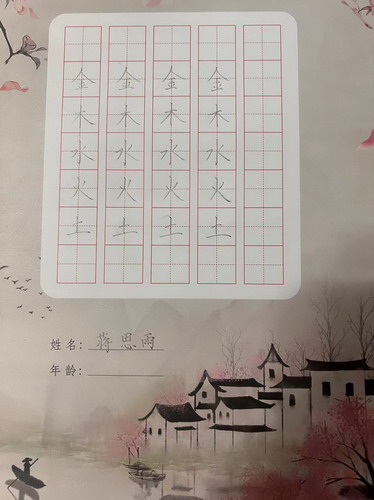 金 金 金 金
木 木 木 木
水 水 水 水
火 火 火 火
土 土 土 土
姓名：蒋思雨
年龄：